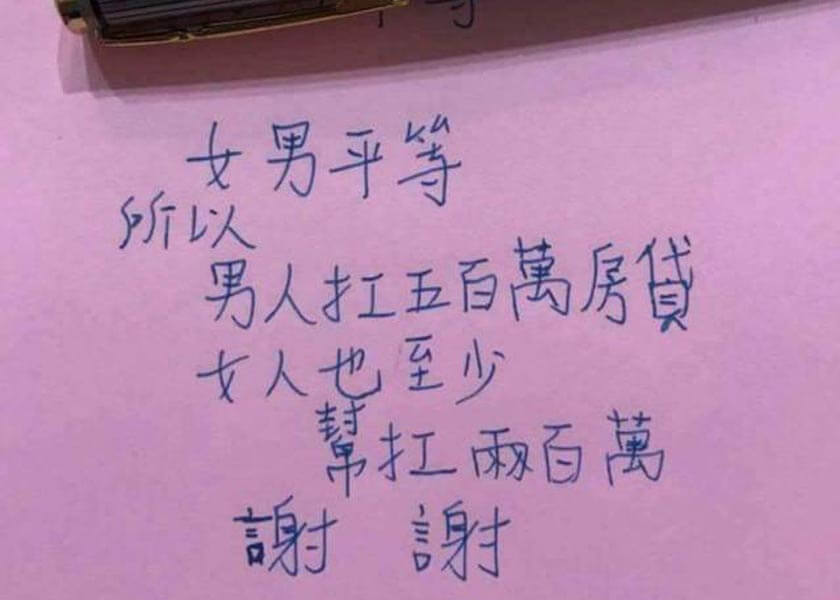 女男平等
所以
男人扛五百萬房貸
女人也至少
幫扛兩百萬
謝 謝